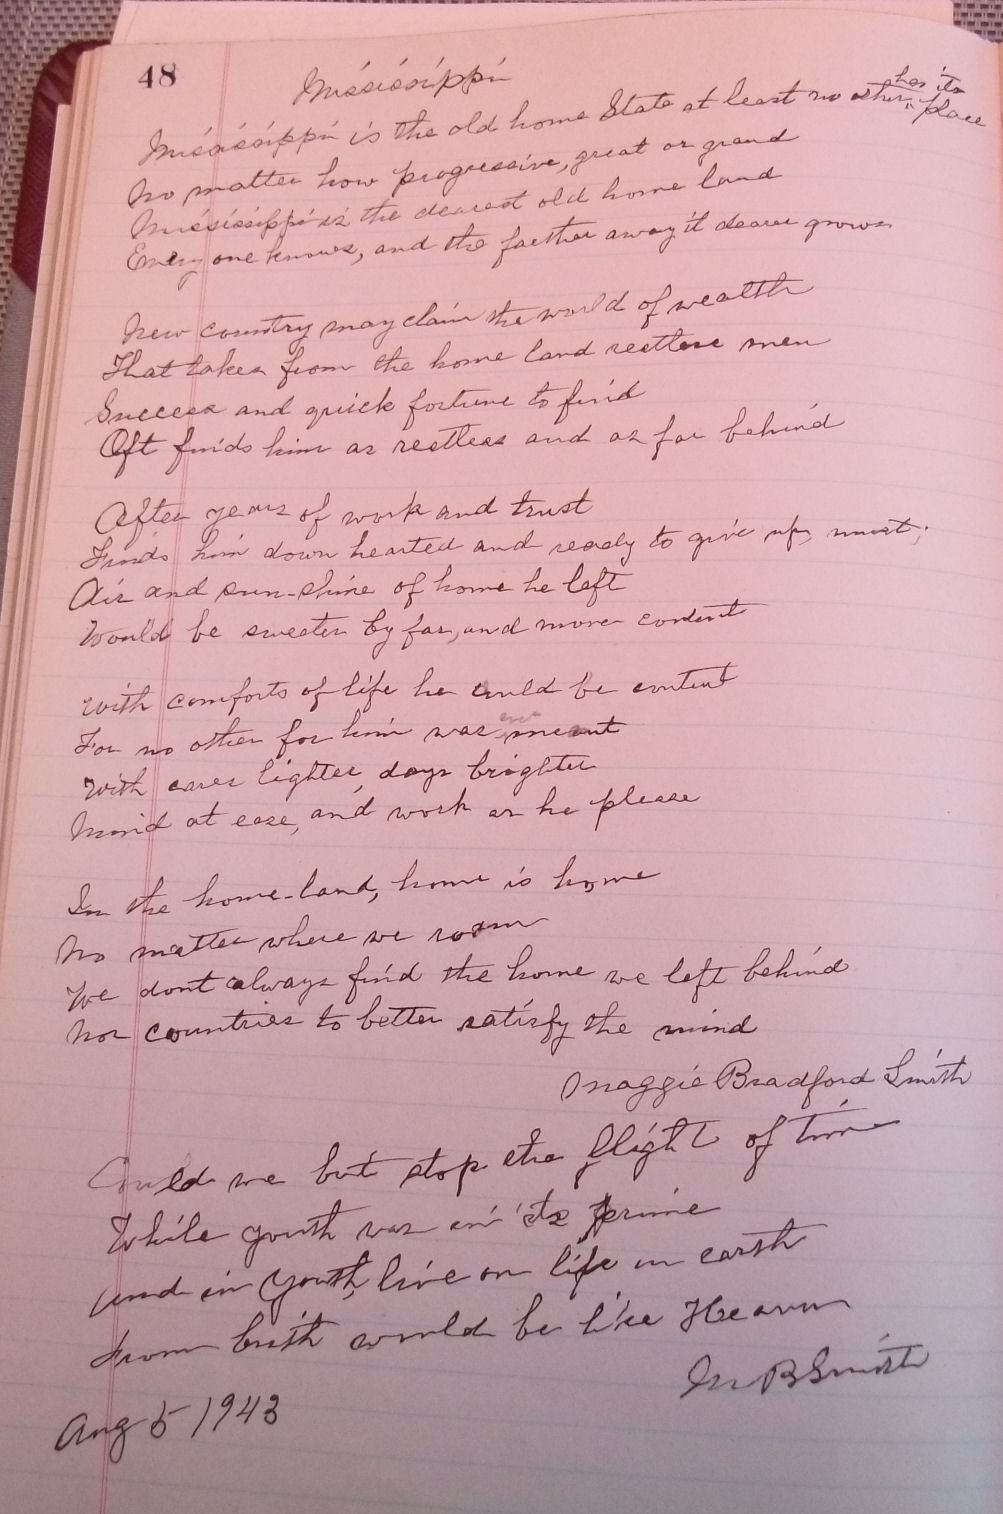 48
Mississippi
Mississippi is the old home State at least no other has its place
No matter how progressive, great or grand
Mississippi is the dearest old home land
Every one knows, and the farther away it dearer grows
New country may claim the world of wealth
That takes from the home land restless men
Success and quick fortune to find
Oft finds him as restless and as far behind
After years of work and trust
Finds him down hearted and ready to give up, must;
Air and sun-shine of home he left
Would be sweeter by far, and more content
With comforts of life he could be content
For no other for him was ever meant
With cares lighter days brighter
Mind at ease, and work as he please
In the home-land, home is home
No matter where we roam
We dont always find the home we left behind
Nor countries to better satisfy the mind
Maggie Bradford Smith
Could we but stop the flight of time
While youth was in its prime
And in youth, live on life on earth
From birth would be like Heaven
M B Smith
Aug 5 1943